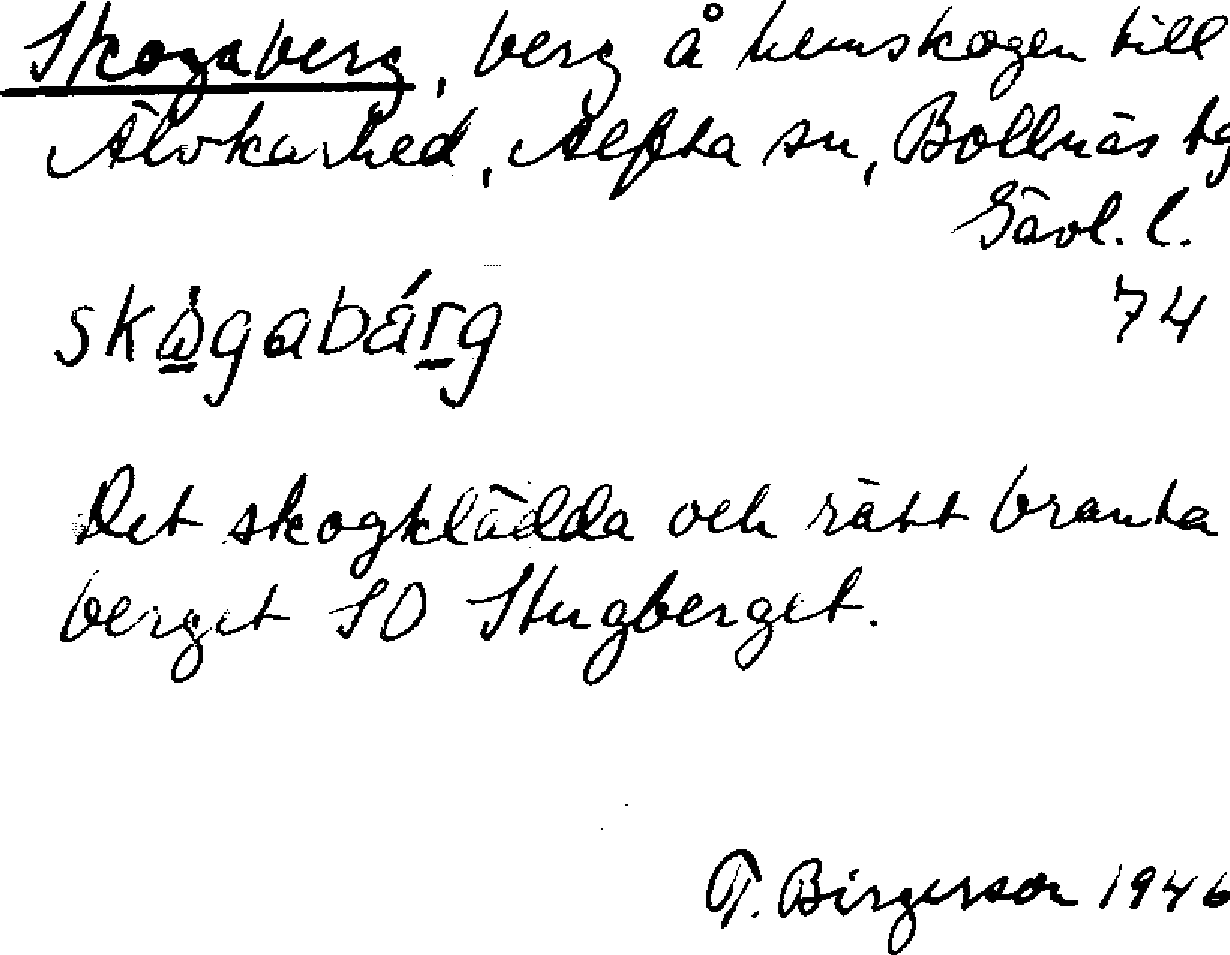 Skogaberg, berg å hemskogen till
Älvkarhed, Alfta sn, Bollnäs tg
Gävl. l.
74
skògabárg
Det skogklädda och rätt branta
berget SO Stugberget.
T. Birgerson 1946